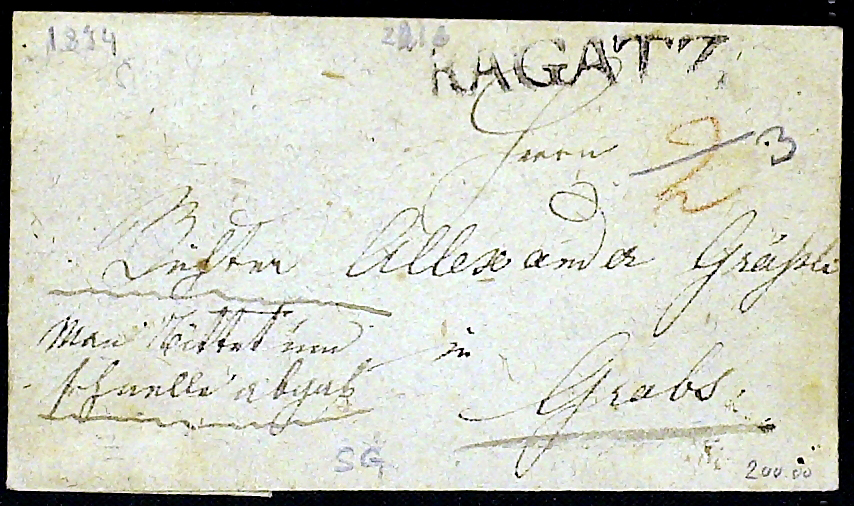 1834
RAGATZ
Herrn
2
3
Richter Allexander Gräßli
Man Bittet um in
schnelle abgab Grabs.
SG
200.00